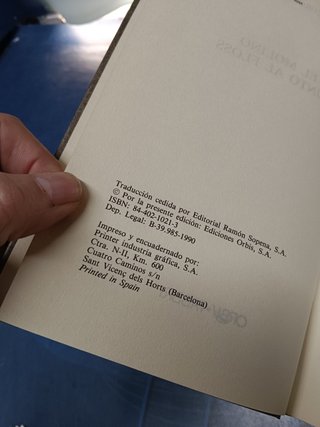 Traducción cedida por Editorial Ramón Sopena, S.A.
© Por la presente edición: Ediciones Orbis, S.A.
ISBN: 84-402-1021-3
Dep. Legal: B-39.985-1990
Impreso y encuadernado por:
Printer industria gráfica, S.A.
Ctra. N-II, Km. 600
Cuatro Caminos s/n
Sant Vicenç dels Horts (Barcelona)
Printed in Spain